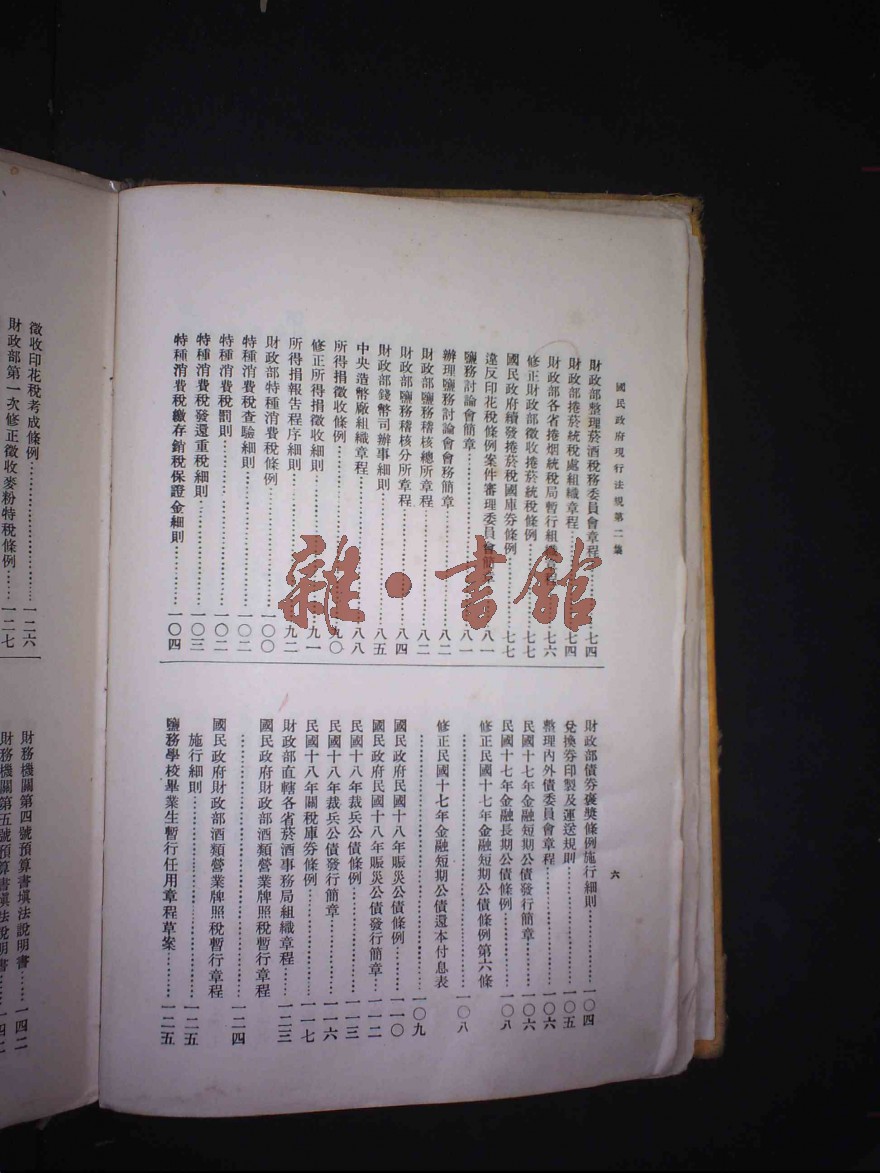 國民政府現行法規第二集
財政部整理菸酒稅務委員會章程……七四
財政部捲菸統稅處組織章程……七四
財政部各省捲烟統稅局暫行組織章程……七六
修正財政部徵收捲菸統稅條例……七七
國民政府續發捲菸稅國庫券條例……七七
違反印花稅條例案件審理委員會簡章……八一
鹽務討論會簡章……八一
辦理鹽務討論會會務簡章……八二
財政部鹽務稽核總所章程……八二
財政部鹽務稽核分所章程……八四
財政部錢幣司辦事細則……八五
中央造幣廠組織章程……八八
所得捐徵收條例……九〇
修正所得捐徵收細則……九一
所得捐報告程序細則……九二
財政部特種消費稅條例……一〇〇
特種消費稅查驗細則……一〇二
特種消費稅罰則……一〇二
特種消費稅發還重稅細則……一〇三
特種消費稅繳存銷稅保證金細則……一〇四
財政部債券褒獎條例施行細則……一〇四
兌換券印製及運送規則……一〇五
整理內外債委員會章程……一〇六
民國十七年金融短期公債發行簡章……一〇六
民國十七年金融長期公債條例……一〇八
修正民國十七年金融短期公債條例第六條
……一〇八
修正民國十七年金融短期公債還本付息表
……一〇九
國民政府民國十八年賑災公債條例……一一〇
國民政府民國十八年賑災公債發行簡章……一一二
民國十八年裁兵公債條例……一一三
民國十八年裁兵公債發行簡章……一一六
民國十八年關稅庫券條例……一一七
財政部直轄各省菸酒事務局組織章程……一二三
國民政府財政部酒類營業牌照稅暫行章程
……一二四
國民政府財政部酒類營業牌照稅暫行章程
施行細則……一二五
鹽務學校畢業生暫行任用章程草案……一二五
六
徵收印花稅考成條例……一二六
財政部第一次修正徵收麥粉特稅條例……一二七
財務機關第四號預算書填法說明書……一四二
財務機關第五號預算書填法說明書……一四二
雜·書館